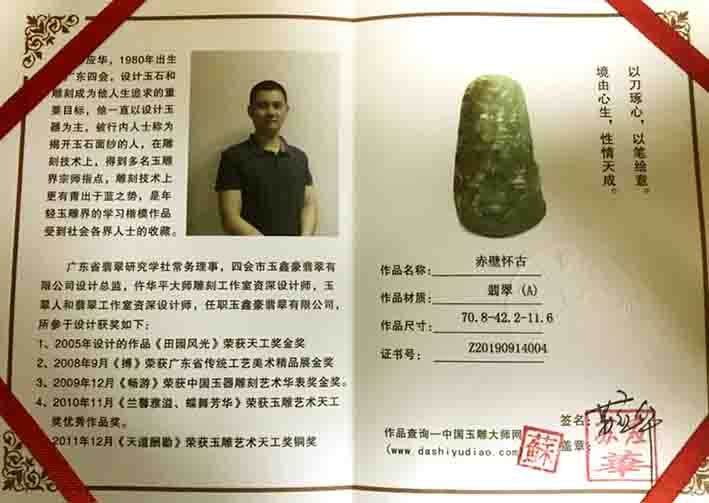 应华，1980年出生
广东四会。设计玉石和
雕刻成为他人生追求的重
要目标，他一直以设计玉
器为主，被行内人士称为
揭开玉石面纱的人，在雕
刻技术上，得到多名玉雕
界宗师指点，雕刻技术上
更有青出于蓝之势，是年
轻玉雕界的学习楷模作品
受到社会各界人士的收藏。
广东省翡翠研究学社常务理事，四会市玉鑫豪翡翠有
限公司设计总监，仵华平大师雕刻工作室资深设计师，玉
翠人和翡翠工作室资深设计师，任职玉鑫豪翡翠有限公司，
所参于设计获奖如下：
1、2005年设计的作品《田园风光》荣获天工奖金奖
2、2008年9月《搏》荣获广东省传统工艺美术精品展金奖
3、2009年12月《畅游》荣获中国玉器雕刻艺术华表奖金奖。
4、2010年11月《兰馨雅溢、蝶舞芳华》荣获玉雕艺术天工
奖优秀作品奖。
2011年12月《天道酬勤》荣获玉雕艺术天工奖铜奖
以刀琢心，以笔绘意。
境由心生，性情天成。
作品名称：赤壁怀古
作品材质：翡翠 (A)
作品尺寸：70.8-42.2-11.6
证书号：Z20190914004
签名：
盖章：
作品查询—中国玉雕大师网
(www.dashiyudiao.com)
蘇
華